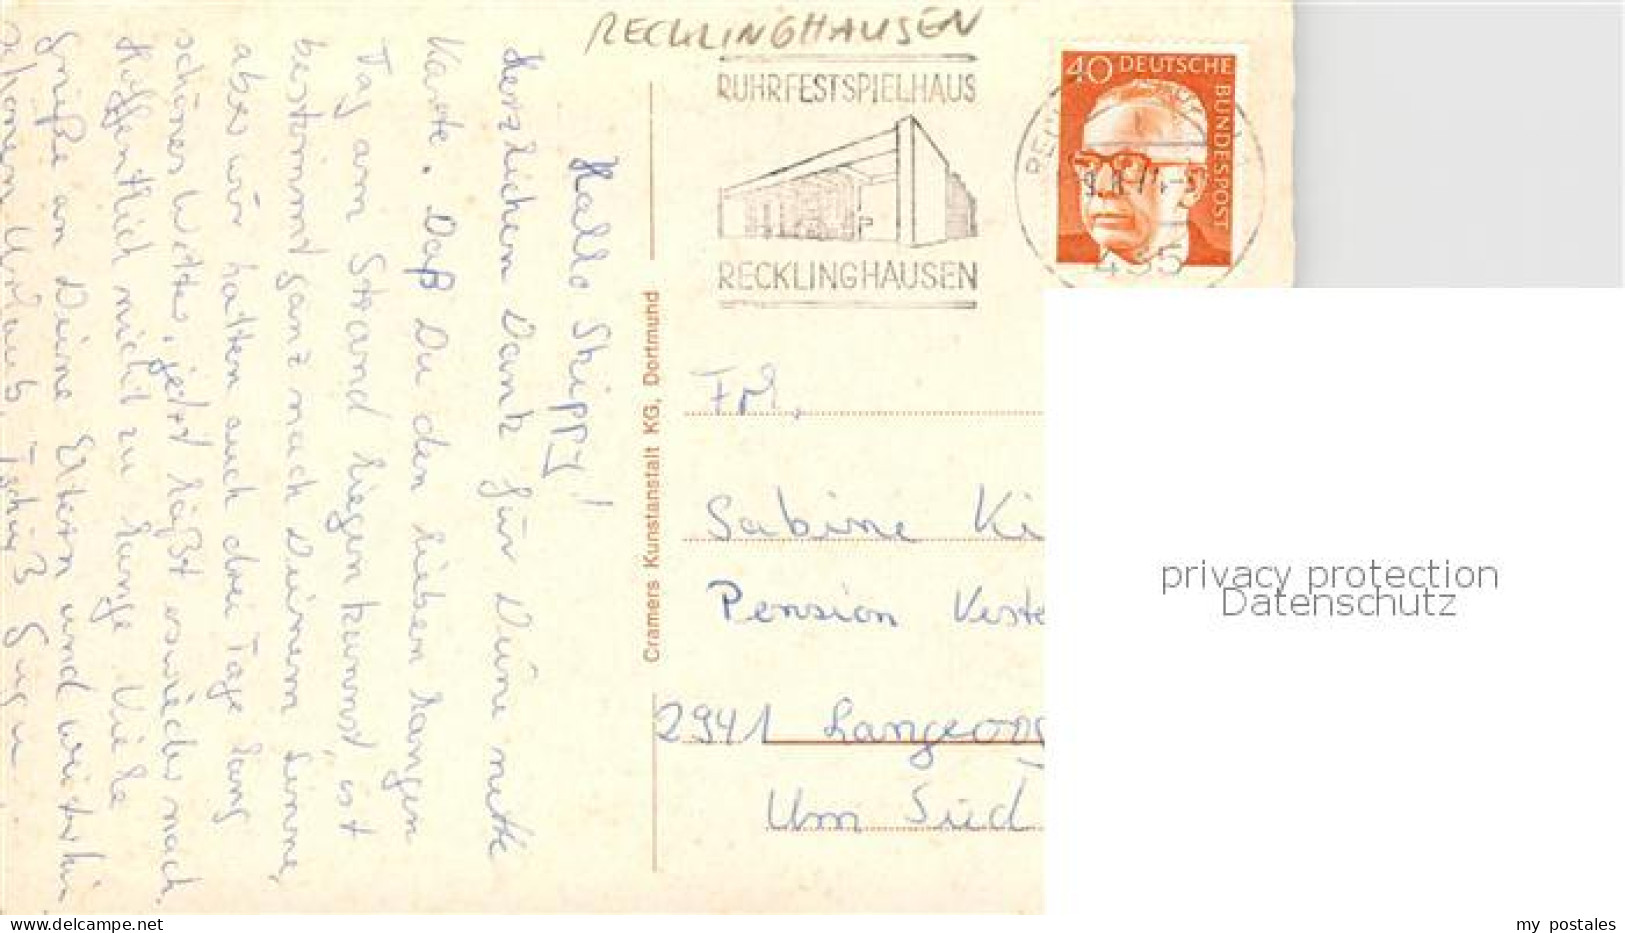 RECKLINGHAUSEN
RUHRFESTSPIELHAUS
RECKLINGHAUSEN
40 DEUTSCHE
BUNDESPOST
435
Hallo Skippy!
Herzlichen Dank für Deine nette
Karte. Daß Du den lieben langen
Tag am Strand liegen kannst, ist
bestimmt ganz nach Deinem Sinne,
aber wir hatten auch drei Tage lang
schönes Wetter, jetzt läßt es wieder nach.
Hoffentlich nicht zu lange. Viele
Grüße an Deine Eltern und weiterhin
schönen Urlaub, Tschüß
Cramers Kunstanstalt KG, Dortmund
Frl.
Sabine Ki
Pension Veste
2941 Langeoog
Um Süd
privacy protection
Datenschutz
my postales